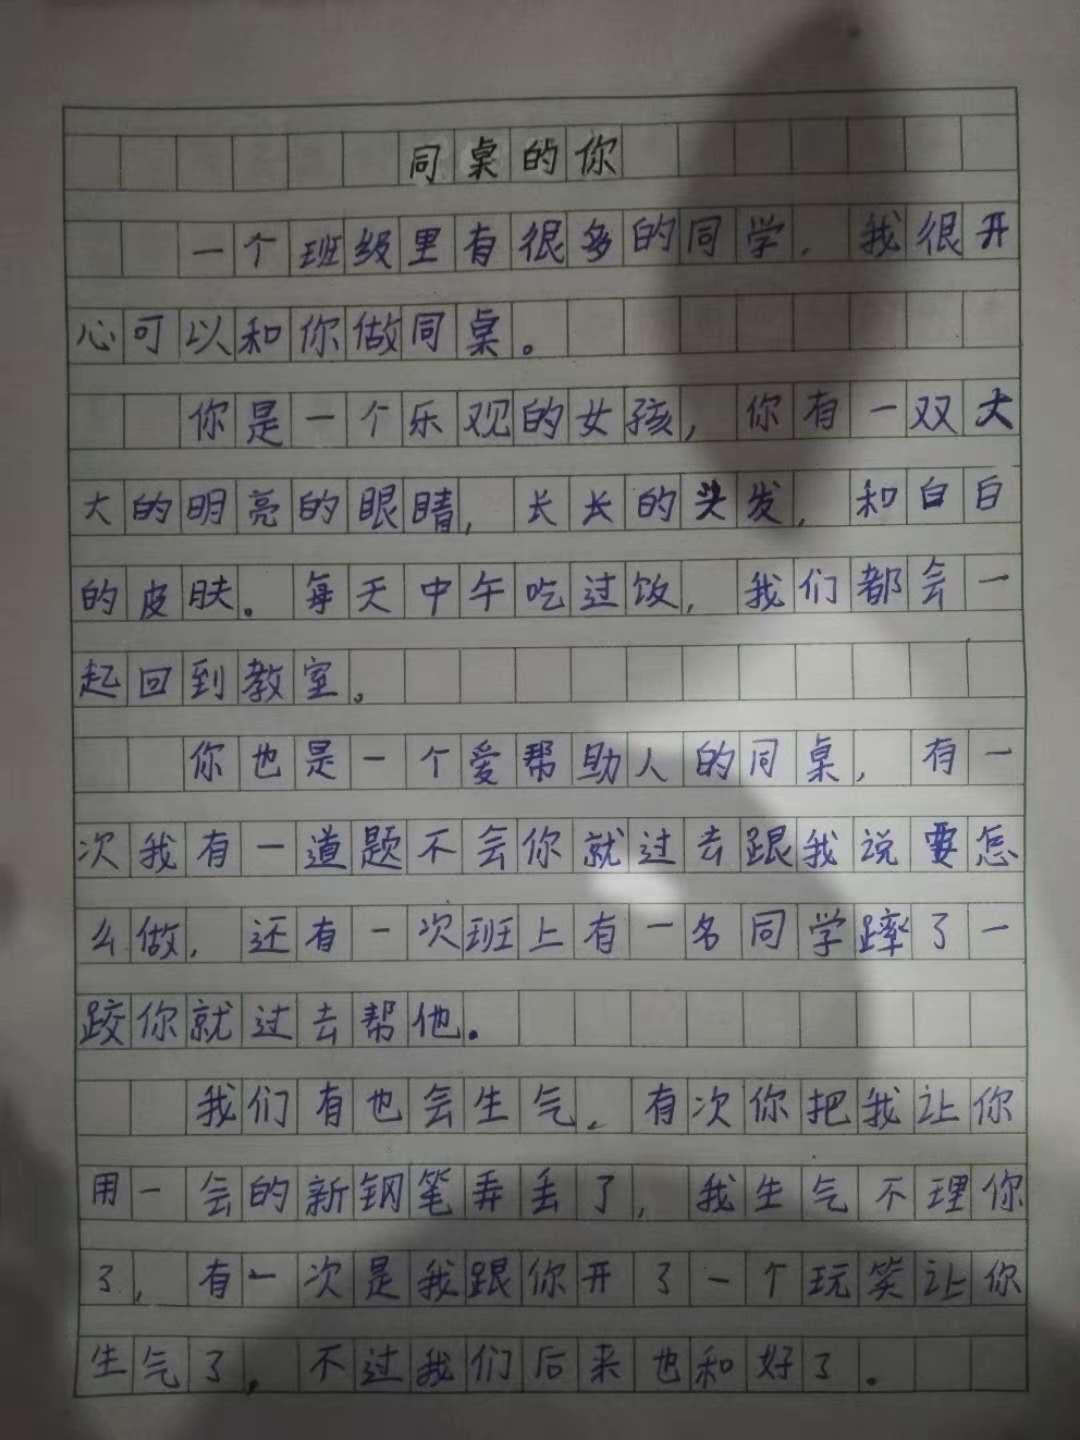 同桌的你
一个班级里有很多的同学,我很开
心可以和你做同桌。
你是一个乐观的女孩,你有一双大
大的明亮的眼睛,长长的头发,和白白
的皮肤。每天中午吃过饭,我们都会一
起回到教室。
你也是一个爱帮助人的同桌,有一
次我有一道题不会你就过去跟我说要怎
么做,还有一次班上有一名同学蹿了一
跤你就过去帮他.
我们有也会生气.有次你把我让你
用一会的新钢笔弄丢了,我生气不理你
了,有一次是我跟你开了一个玩笑让你
生气了,不过我们后来也和好了.